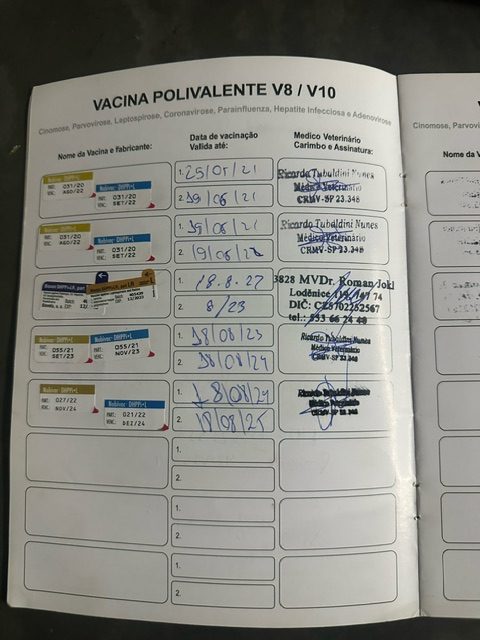 VACINA POLIVALENTE V8 / V10
Cinomose, Parvovirose, Leptospirose, Coronavirose, Parainfluenza, Hepatite Infecciosa e Adenovirose
Nome da Vacina e Fabricante:
Data de vacinação
Valida até:
Medico Veterinário
Carimbo e Assinatura:
PART.: 031/20
VENC.: AGO/22
Nobivac DHPPi+L
PART.: 031/20
VENC.: SET/22
1. 25/05/21
2. 19/06/21
Ricardo Tubaldini Nunes
Médico Veterinário
CRMV-SP 23.348
PART.: 031/20
VENC.: AGO/22
Nobivac DHPPi+L
PART.: 031/20
VENC.: SET/22
1. 19/06/21
2. 19/06/22
Ricardo Tubaldini Nunes
Médico Veterinário
CRMV-SP 23.348
1. 18.8.22
2. 8/23
3828 MVDr. Roman Jokl
Loděnice
DIČ: CZ5702252567
tel.: 533 66 24 48
Nobivac DHPPi+L
PART.: 055/21
VENC.: SET/23
Nobivac DHPPi+L
PART.: 055/21
VENC.: NOV/23
1. 18/08/23
2. 18/08/24
Ricardo Tubaldini Nunes
Médico Veterinário
CRMV-SP 23.348
Nobivac DHPPi+L
PART.: 027/22
VENC.: NOV/24
Nobivac DHPPi+L
PART.: 021/22
VENC.: DEZ/24
1. 18/08/24
2. 18/08/25
Ricardo Tubaldini Nunes
Médico Veterinário
CRMV-SP 23.348
1.
2.
1.
2.
1.
2.
V
Cinomose, Parvovi
Nome da V